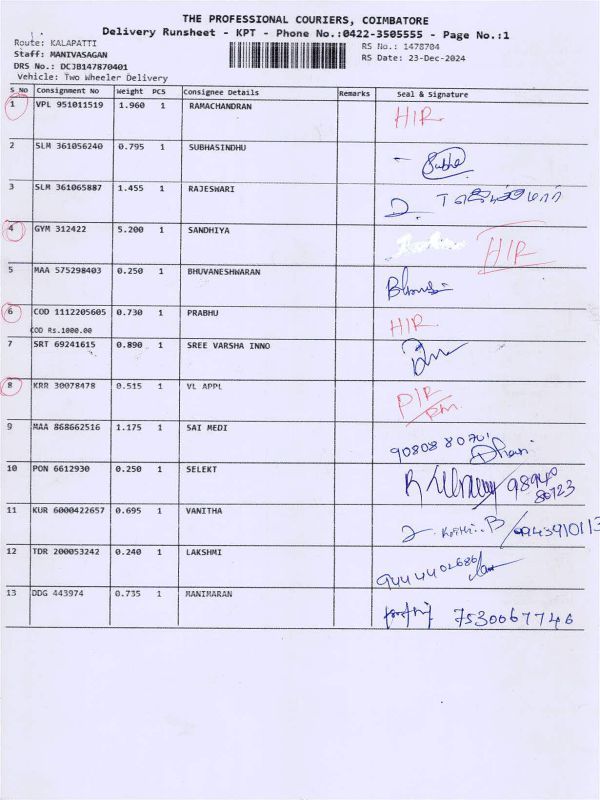 THE PROFESSIONAL COURIERS, COIMBATORE
Delivery Runsheet - KPT - Phone No.:0422-3505555 - Page No.:1
Route: KALAPATTI
Staff: MANIVASAGAN
DRS No.: DCJB147870401
Vehicle: Two Wheeler Delivery
RS No.: 1478704
RS Date: 23-Dec-2024
S No Consignment No Weight PCS Consignee Details Remarks Seal & Signature
1 VPL 951011519 1.960 1 RAMACHANDRAN HIR
2 SLM 361056240 0.795 1 SUBHASINDHU Subha
3 SLM 361065887 1.455 1 RAJESWARI
4 GYM 312422 5.200 1 SANDHIYA HIR
5 MAA 575298403 0.250 1 BHUVANESHWARAN
6 COD 1112205605 0.730 1 PRABHU HIR
COD Rs.1000.00
7 SRT 69241615 0.890 1 SREE VARSHA INNO
8 KRR 30078478 0.515 1 VL APPL PIR
9 MAA 868662516 1.175 1 SAI MEDI
10 PON 6612930 0.250 1 SELEKT 98940 80723
11 KUR 6000422657 0.695 1 VANITHA
12 TDR 200053242 0.240 1 LAKSHMI 9444402686
13 DDG 443974 0.735 1 MANIMARAN 7530067746